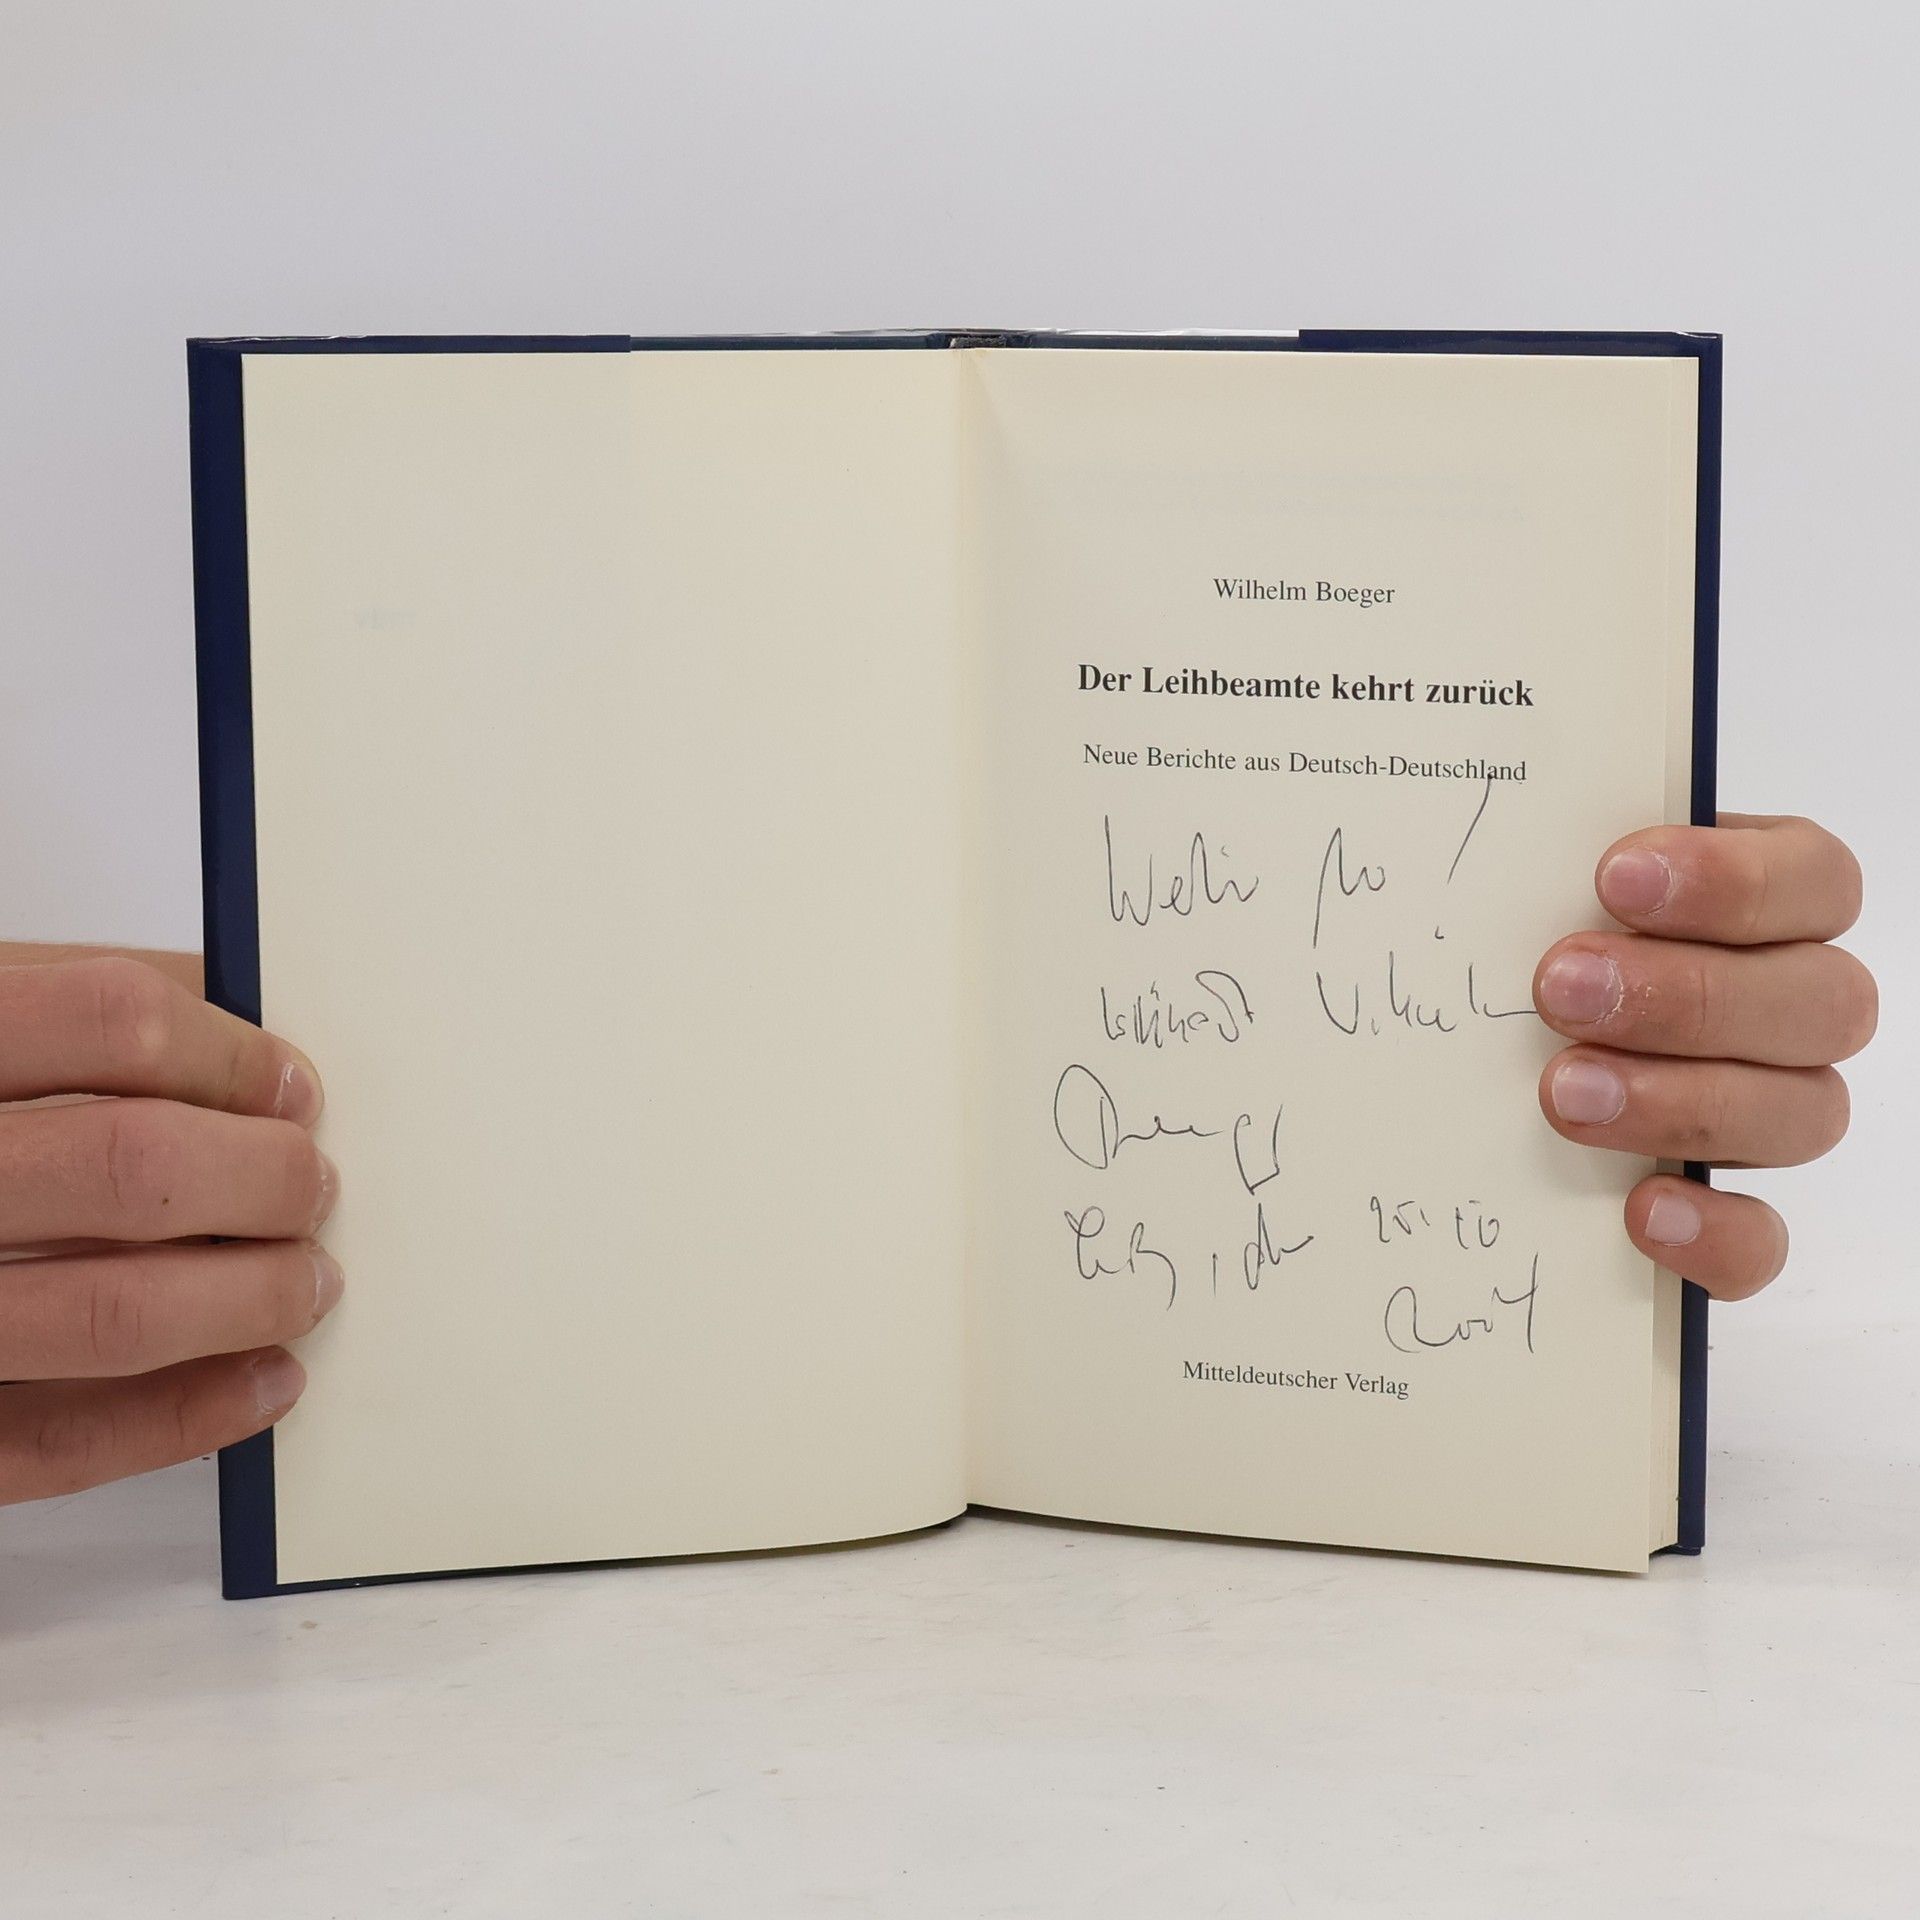 Wilhelm Boeger
Der Leihbeamte kehrt zurück
Neue Berichte aus Deutsch-Deutschland
Weiter so!
wünscht
25. 10
2004
Mitteldeutscher Verlag